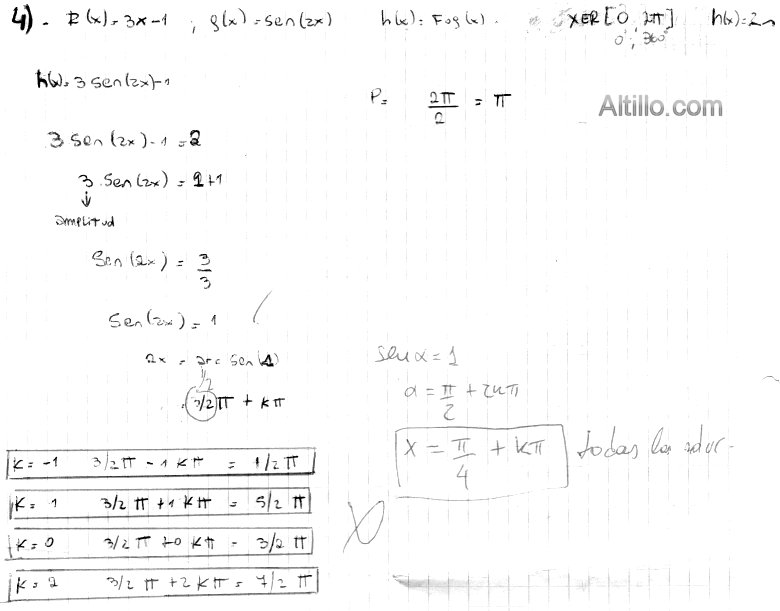 4) - F(x) = 3x-1 ; g(x) = sen(2x) h(x) = Fog(x). x∈R [0 2π] h(x)=2
0°; 360°
h(x)=3 sen(2x)-1
P= 2π/2 = π
Altillo.com
3 sen(2x)-1 = 2
3 . sen(2x) = 2+1
↓
amplitud
Sen(2x) = 3/3
Sen(2x) = 1
2x = arc sen(1)
3/2 π + kπ
sen α = 1
α = π/2 + 2kπ
x = π/4 + kπ todas las
K= -1 3/2 π - 1 kπ = 1/2 π
K= 1 3/2 π + 1 kπ = 5/2 π
K= 0 3/2 π + 0 kπ = 3/2 π
K= 2 3/2 π + 2 kπ = 7/2 π